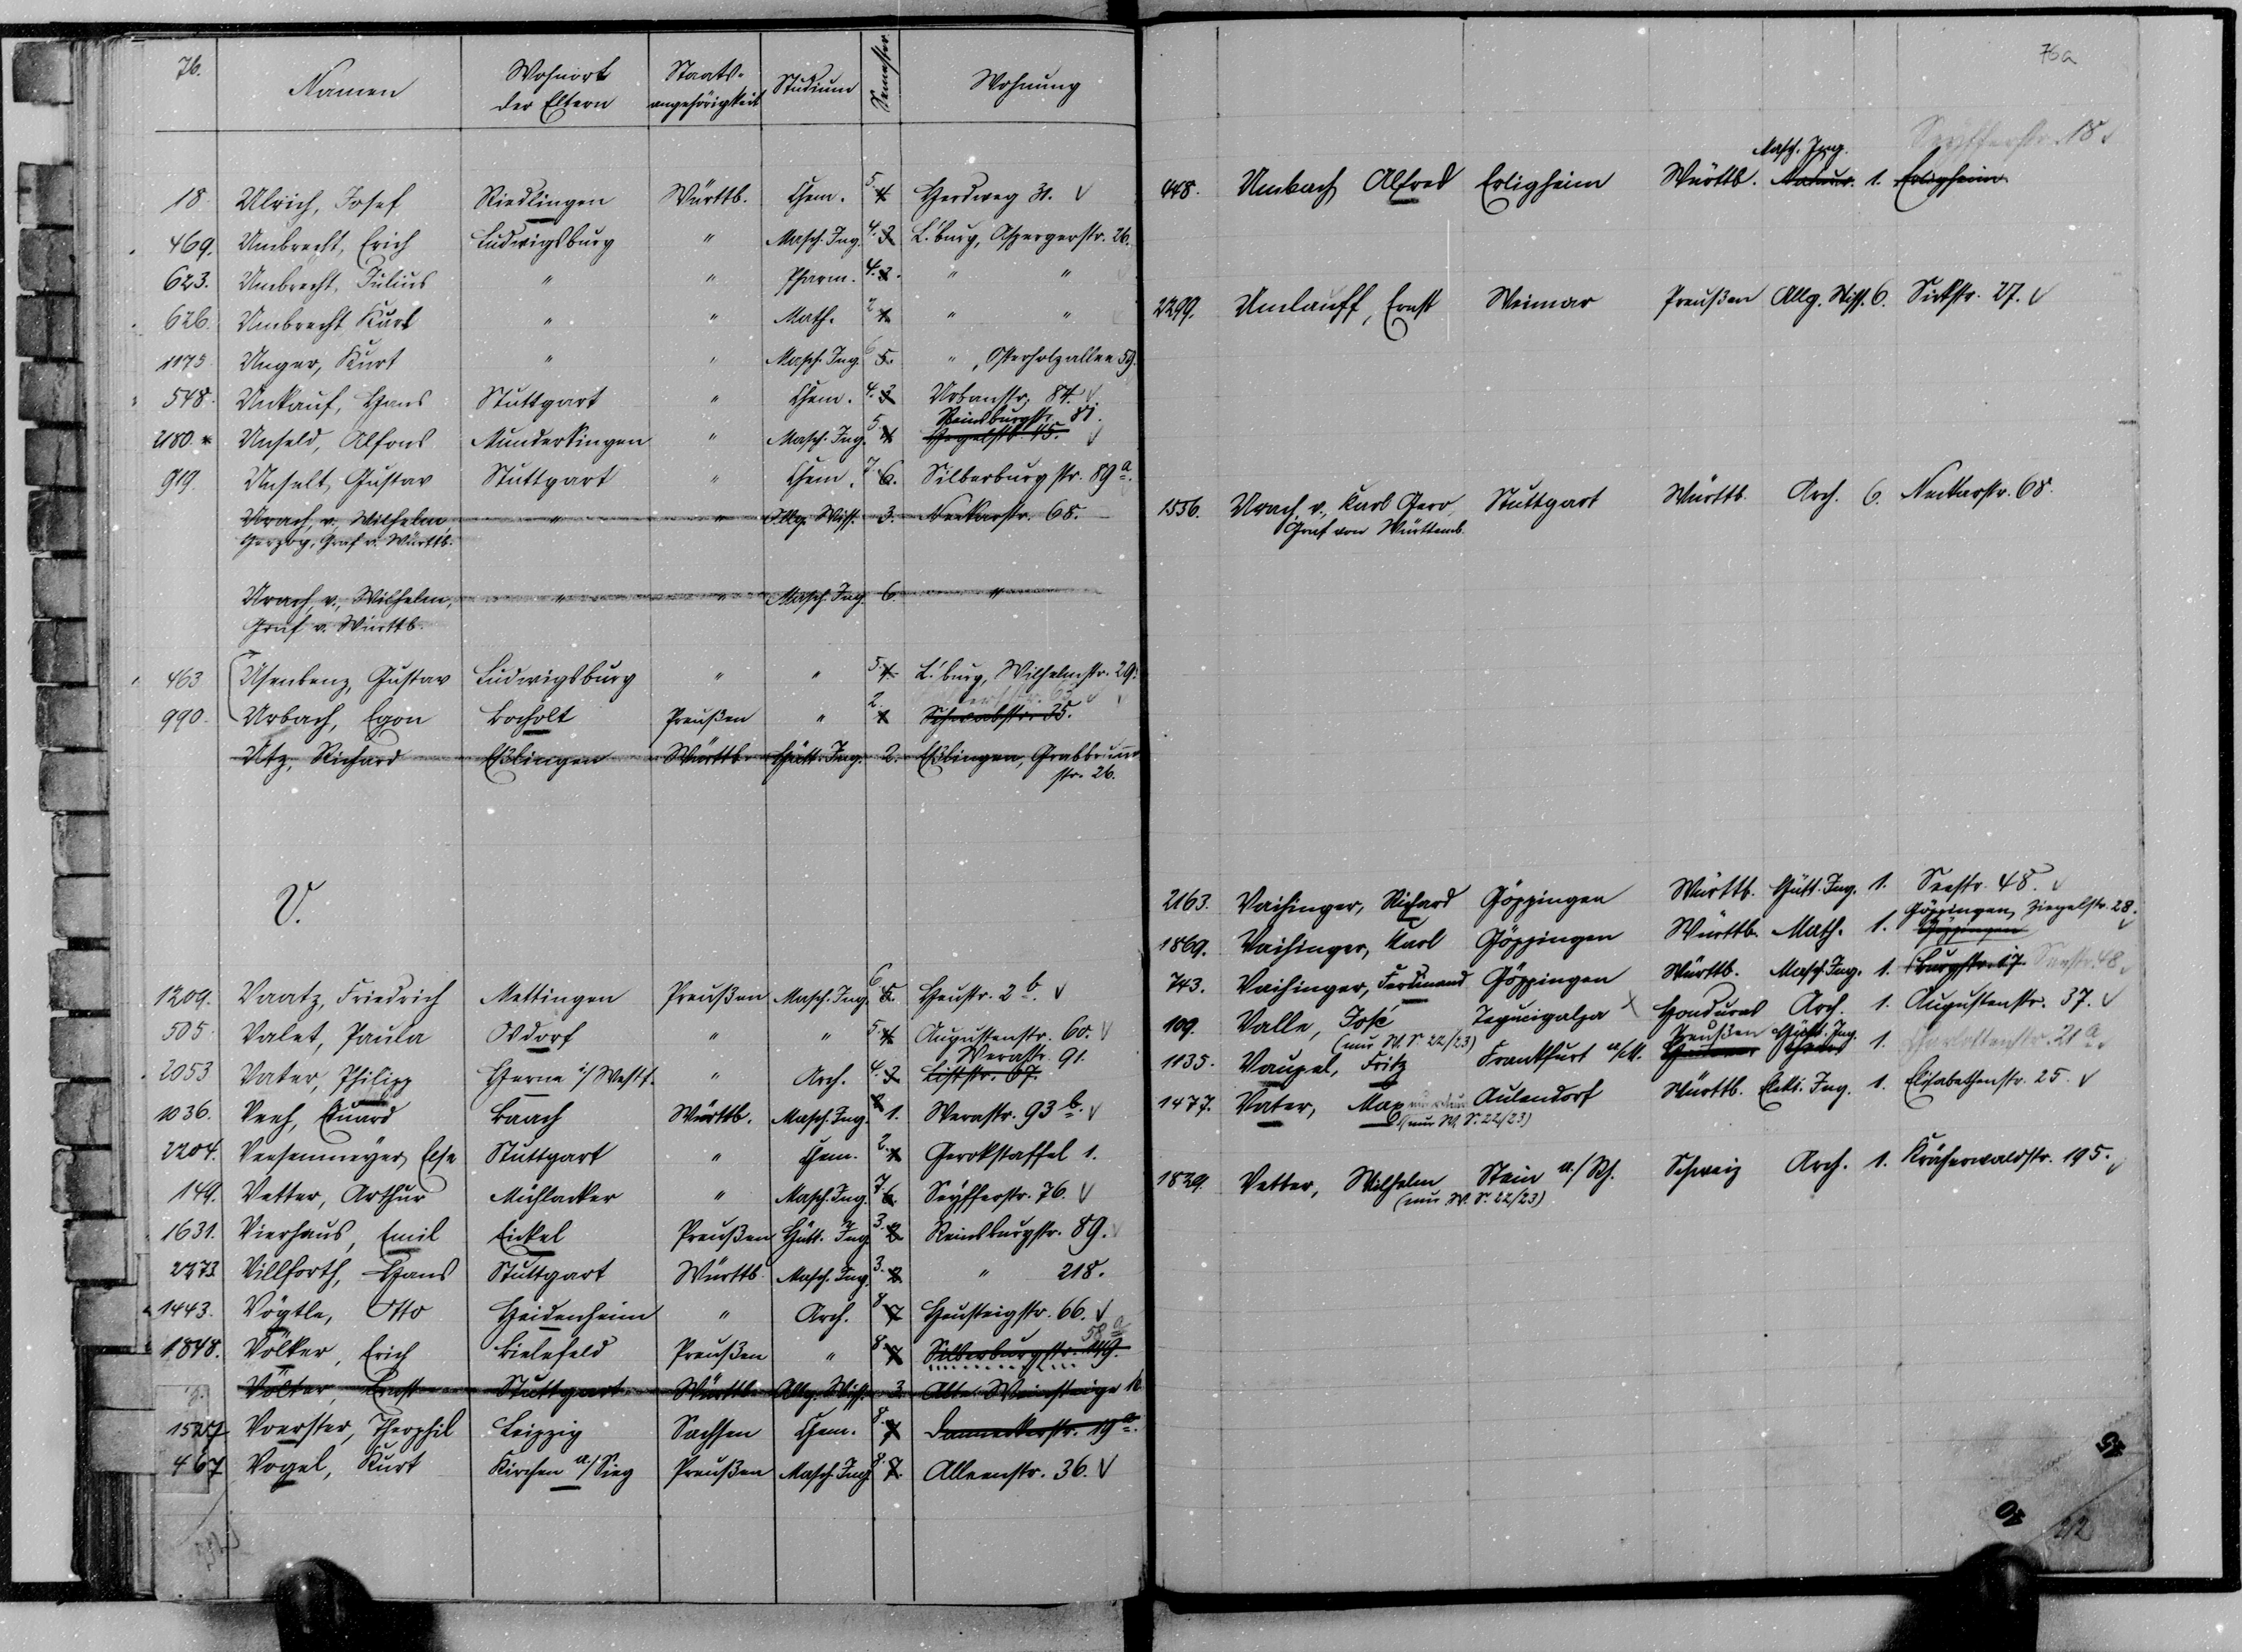 76.
Namen Wohnort der Eltern Staats-angehörigkeit Studium Semester Wohnung
18. Ulrich, Josef Riedlingen Württb. Chem. 5. 4. Herdweg 31. √
469. Umbrecht, Erich Ludwigsburg " Masch. Ing. 4. 3. L'burg, Aspergerstr. 26.
623. Umbrecht, Julius " " Pharm. 4. 3. " "
626. Umbrecht Kurt " " Math. 2. 1. " "
1175. Unger, Kurt " " Masch. Ing. 6 5. ", Osterholzallee 59.
548. Unkauf, Hans Stuttgart " Chem. 4. 3. Urbanstr. 84. √
Reinsburgstr. 81.
2180. * Unseld, Alfons Munderkingen " Masch. Ing. 5. 4. Hegelstr. 45. √
919. Unselt, Gustav Stuttgart " Chem. 7. 6. Silberburgstr. 89 a.
Urach, v., Wilhelm, " " Allg. Wiss. 3. Neckarstr. 68.
Herzog, Graf v. Württb.
Urach, v., Wilhelm, " " Masch. Ing. 6. "
Graf v. Württb.
463 Usenbenz, Gustav Ludwigsburg " " 5. 4. L'burg, Wilhelmstr. 29.
990. Urbach, Egon Bocholt Preußen " 2. 1. Schwabstr. 35.
Utz, Richard Eßlingen Württb. Hütt. Ing. 2. Eßlingen, Grabbrunn-
str. 26.
V.
1209. Vaatz, Friedrich Mettingen Preußen Masch. Ing. 6 5. Heustr. 2 b. √
505. Valet, Paula Osdorf " " 5. 4. Augustenstr. 60. √
Werastr. 91.
2053 Vater, Philipp Herne i/Westf. " Arch. 4. 3. Liststr. 67.
1036. Veeh, Eduard Baach Württb. Masch. Ing. 2 1. Werastr. 93 b. √
2204. Veesenmeyer, Else Stuttgart " Chem. 2. 1. Gerokstaffel 1.
149. Vetter, Arthur Mühlacker " Masch. Ing. 7 6. Seyfferstr. 76. √
1631. Vierhaus, Emil Eickel Preußen Hütt. Ing. 3. 2. Reinsburgstr. 89.
2273 Villforth, Hans Stuttgart Württb. Masch. Ing. 3. 2. " 218.
1443. Vögtle, Otto Heidenheim " Arch. 8 7. Heusteigstr. 66. √
58 a
1848. Völker, Erich Bielefeld Preußen " 8. 7. Silberburgstr. 119.
Völter, Ernst Stuttgart Württb. Allg. Wiss. 3. Alte Weinsteige
1527 Voerster, Theophil Leipzig Sachsen Chem. 8. 7. Danneckerstr. 19 a.
467 Vogel, Kurt Kirchen a/Sieg Preußen Masch. Ing. 8. 7. Alleenstr. 36. √
76a
Seyfferstr. 18 √
Masch. Ing.
448. Umbach Alfred Erligheim Württb. Natur. 1. Erligheim
2299. Umlauff, Ernst Weimar Preußen Allg. Wiss. 6. Sickstr. 27. √
1556. Urach, v., Karl Gero, Stuttgart Württb. Arch. 6. Neckarstr. 68.
Graf von Württemb.
2163. Vaihinger, Richard Göppingen Württb. Hütt. Ing. 1. Seestr. 48. √
Göppingen, Ziegelstr. 28.
1869. Vaihinger, Karl Göppingen Württb. Math. 1. Göppingen
743. Vaihinger, Ferdinand Göppingen Württb. Masch. Ing. 1. Burgstr. 17. Seestr. 48.
109. Valle, José Tegucigalpa Honduras Arch. 1. Augustenstr. 37. √
(nur W. S. 22/23) Preußen Hütt. Ing.
1135. Vaupel, Fritz Frankfurt a/M. 1. Charlottenstr. 21 a.
1477. Vater, Max Aulendorf Württb. Elekt. Ing. 1. Elisabethenstr. 25. √
(nur W. S. 22/23)
1829. Vetter, Wilhelm Stein a./Rh. Schweiz Arch. 1. Kräherwaldstr. 195. √
(nur W. S. 22/23)
22